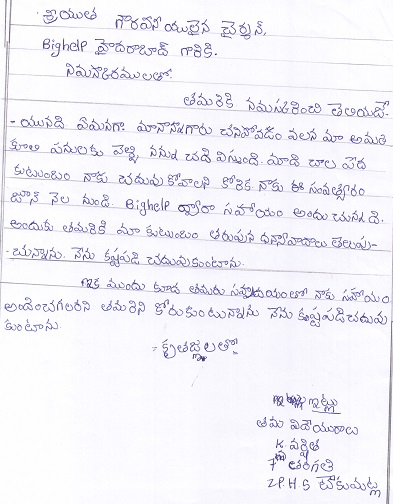 శ్రీయుత గౌరవనీయులైన చైర్మన్,
Bighelp హైదరాబాద్ గారికి.
నమస్కారములతో.
తమరికి నమస్కరించి తెలియజే-
-యునది ఏమనగా మానాన్నగారు చనిపోవడం వలన మా అమ్మ
కూలి పనులకు వెళ్ళి నన్ను చదివిస్తుంది. మాది చాల పేద
కుటుంబం నాకు చదువుకోవాలని కోరిక నాకు ఈ సంవత్సరం
జూన్ నెల నుండి. Bighelp ద్వారా సహాయం అందుచున్నది.
అందుకు తమరికి మా కుటుంబం తరుపున ధన్యవాదాలు తెలుపు-
-చున్నాను. నేను కష్టపడి చదువుకుంటాను.
ఇక ముందు కూడ తమరు సహృదయంతో నాకు సహాయం
అందించగలరని తమరిని కోరుకుంటున్నాను నేను కష్టపడి చదువు
కుంటాను
- కృతజ్ఞలతో
ఇట్లు
తమ విదేయురాలు
K. హర్షిత
7వ తరగతి
Z.P.H.S టేకుమట్ల